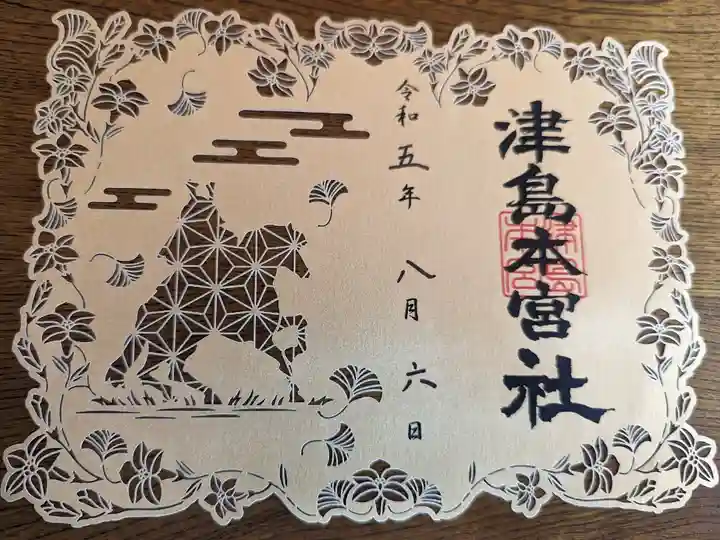 津島本宮社
令和五年八月六日